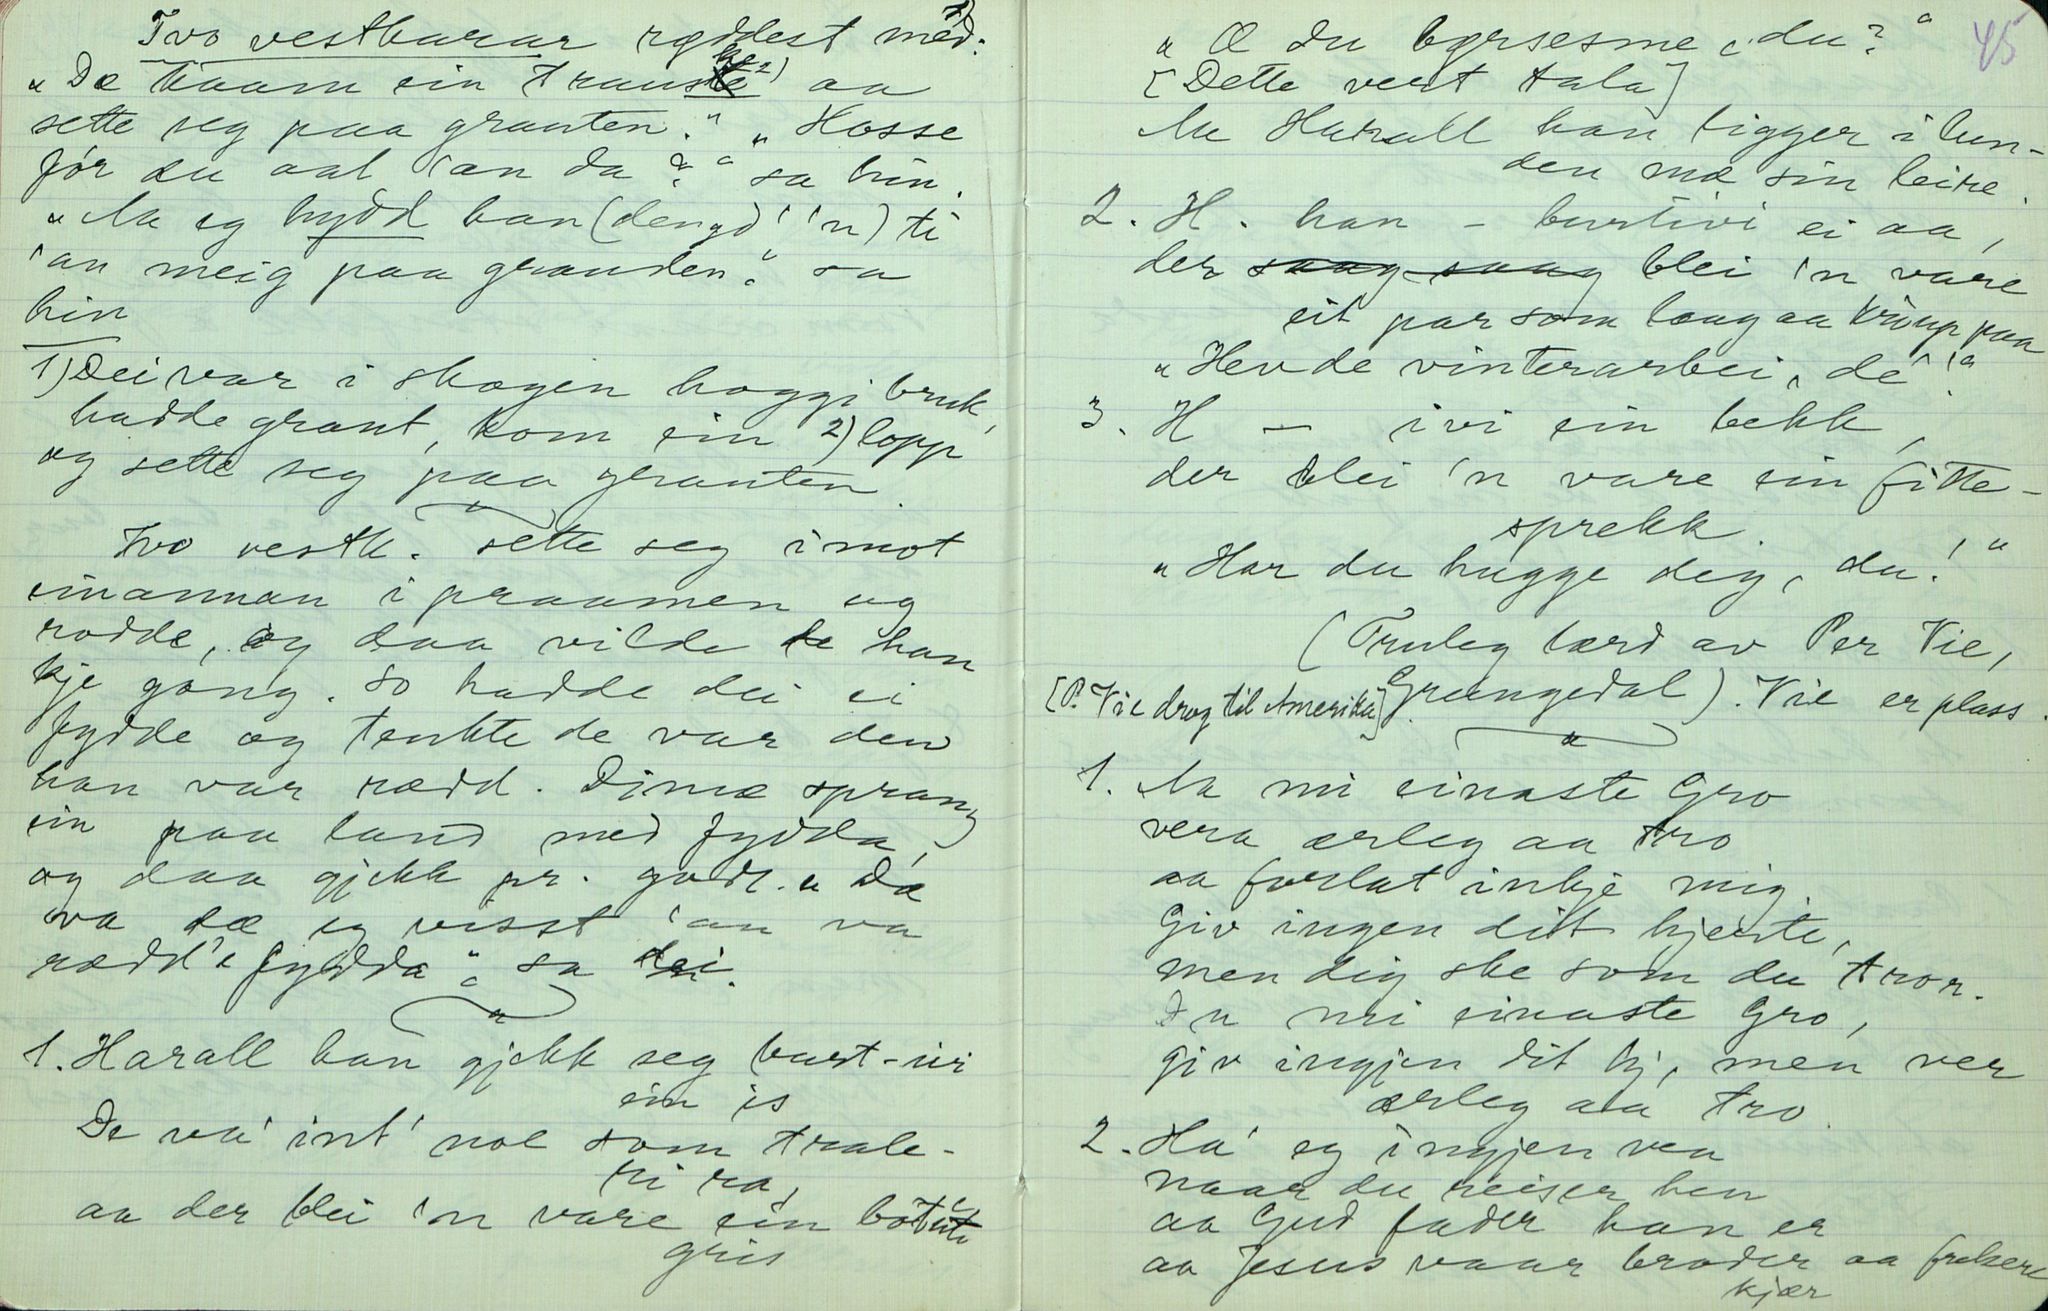 Tvo vestbarar røddest med: 1)
„Dæ kaam ein trauske 2) aa
sette seg paa granten." „Hosse
fór du aat 'an da?" sa hin.
„Aa eg hydd han (dengd' 'n) ti
'an meig paa granden." sa
hin
1) Dei var i skogen hoggi bruk,
hadde grant, kom ein 2) lopp
og sette seg paa granten.
Tvo vestb. sette seg imot
einannan i praamen og
rodde, og daa vilde han
kje gang. So hadde dei ei
fydde og tenkte de var den
han var rædd. Dimæ sprang
ein paa land med fydda,
og daa gjekk pr. godt. „Dæ
va dæ eg visst 'an va
rædd'e fydda", sa dei.
1. Harall han gjekk seg burt-ivi
ein is
De va' int' noe som trale-
ri ra,
aa der blei 'n vare ein
gris
45
„Æ du børsesme, du?"
[Dette vert tala]
Aa Harall han ligger i lun-
den mæ sin leire.
2. H. han – burtivi ei aa,
der blei 'n vare
eit par som laag aa kraup paa
„Hevde vinterarbei, de'!"
3. H – ivi ein bekk,
der blei 'n vare ein fitte-
sprekk.
„Har du hugge deg, du!"
(Truleg lærd av Per Vie,
[P. Vie drog til Amerika] Grungedal). Vie er plass.
1. Aa mi einaste Gro
vera ærleg aa tro
aa forlat inkje mig.
Giv ingen dit hjerte,
men dig ske som du tror.
Du mi einaste Gro,
giv ingjen dit hj, men ver
ærleg aa tro.
2. Ha' eg ingjen ven
naar du reiser hen
aa Gud fader han er
aa Jesus vaar broder aa frelsere
kjær